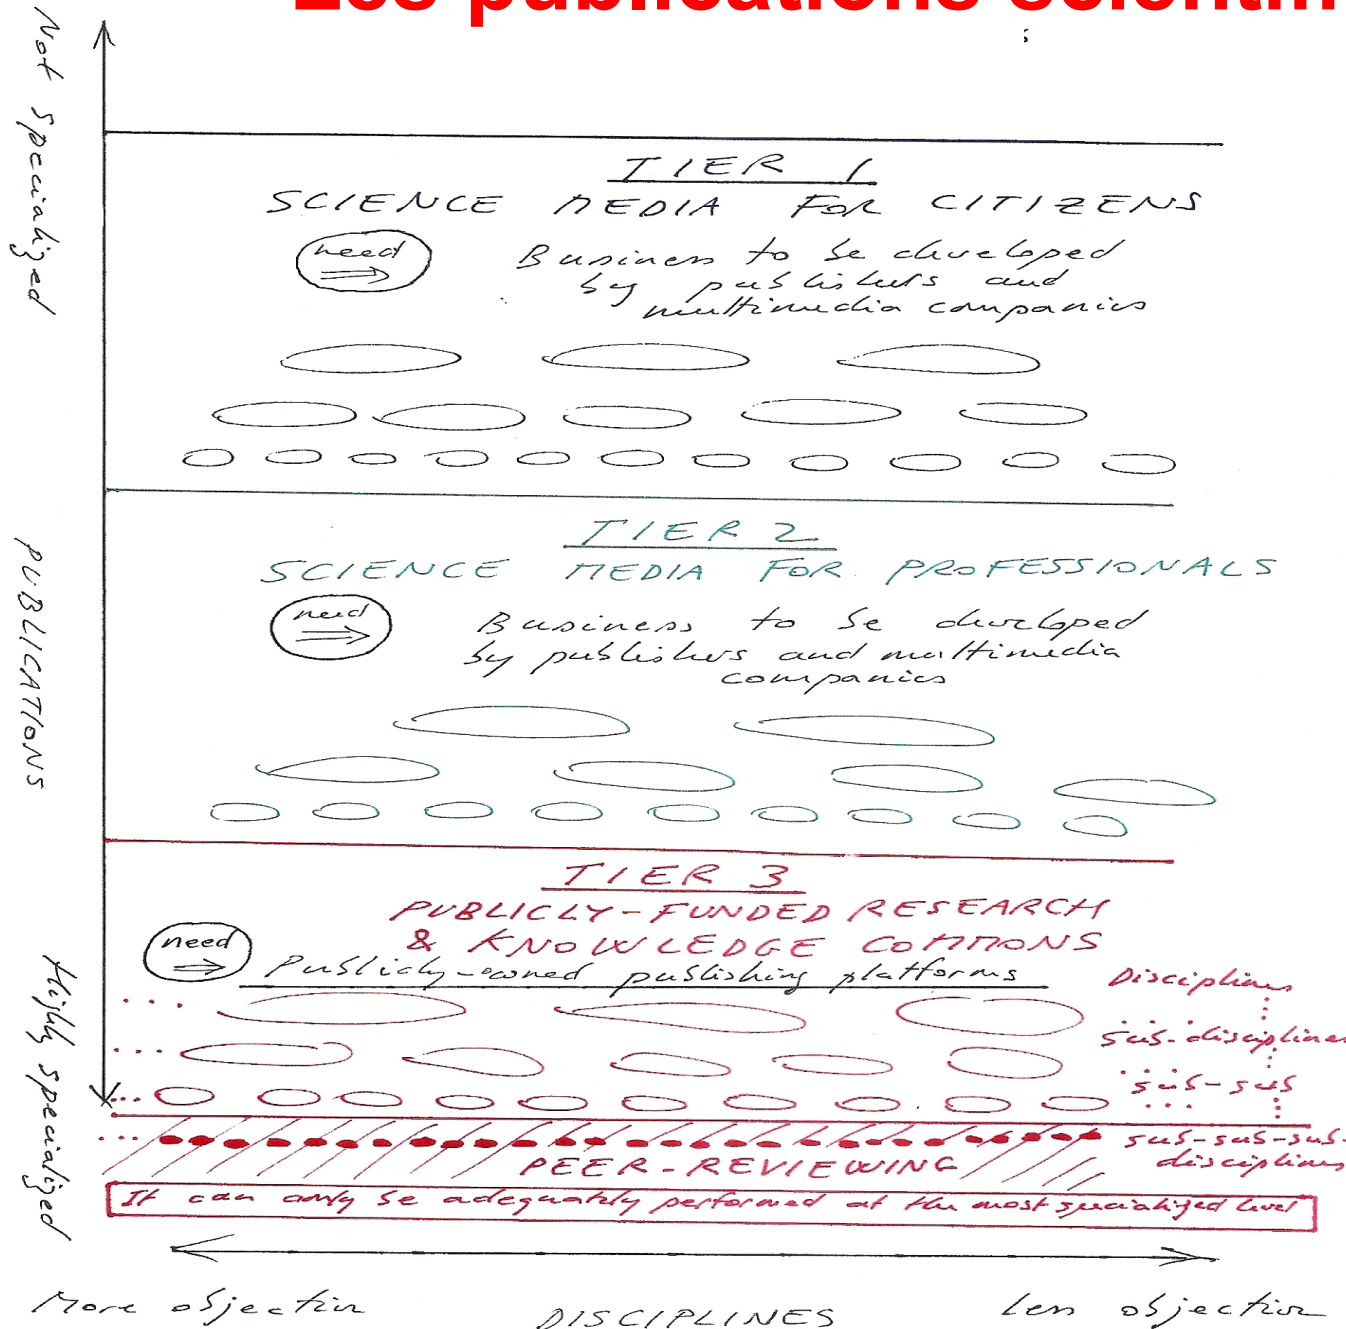 Les publications scientifi
Not specialized
TIER 1
SCIENCE MEDIA FOR CITIZENS
need
Business to be developed
by publishers and
multimedia companies
TIER 2
SCIENCE MEDIA FOR PROFESSIONALS
need
Business to be developed
by publishers and multimedia
companies
PUBLICATIONS
TIER 3
PUBLICLY-FUNDED RESEARCH
& KNOWLEDGE COMMONS
need
Publicly-owned publishing platforms
Disciplines
sub-disciplines
sub-sub
sub-sub-sub-
disciplines
PEER-REVIEWING
It can only be adequately performed at the most specialized level
Highly specialized
More objective
DISCIPLINES
Less objective